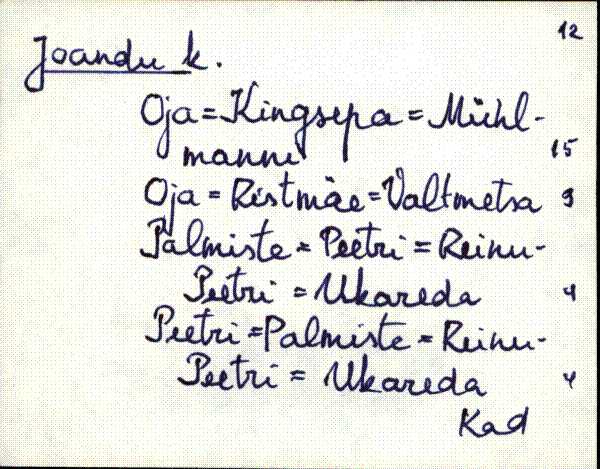 12
Joandu k.
Oja = Kingsepa = Mühl-
manni 15
Oja = Ristmäe = Valtmetsa 9
Palmiste = Peetri = Reinu-
Peetri = Ukareda 4
Peetri = Palmiste = Reinu-
Peetri = Ukareda 4
Kad